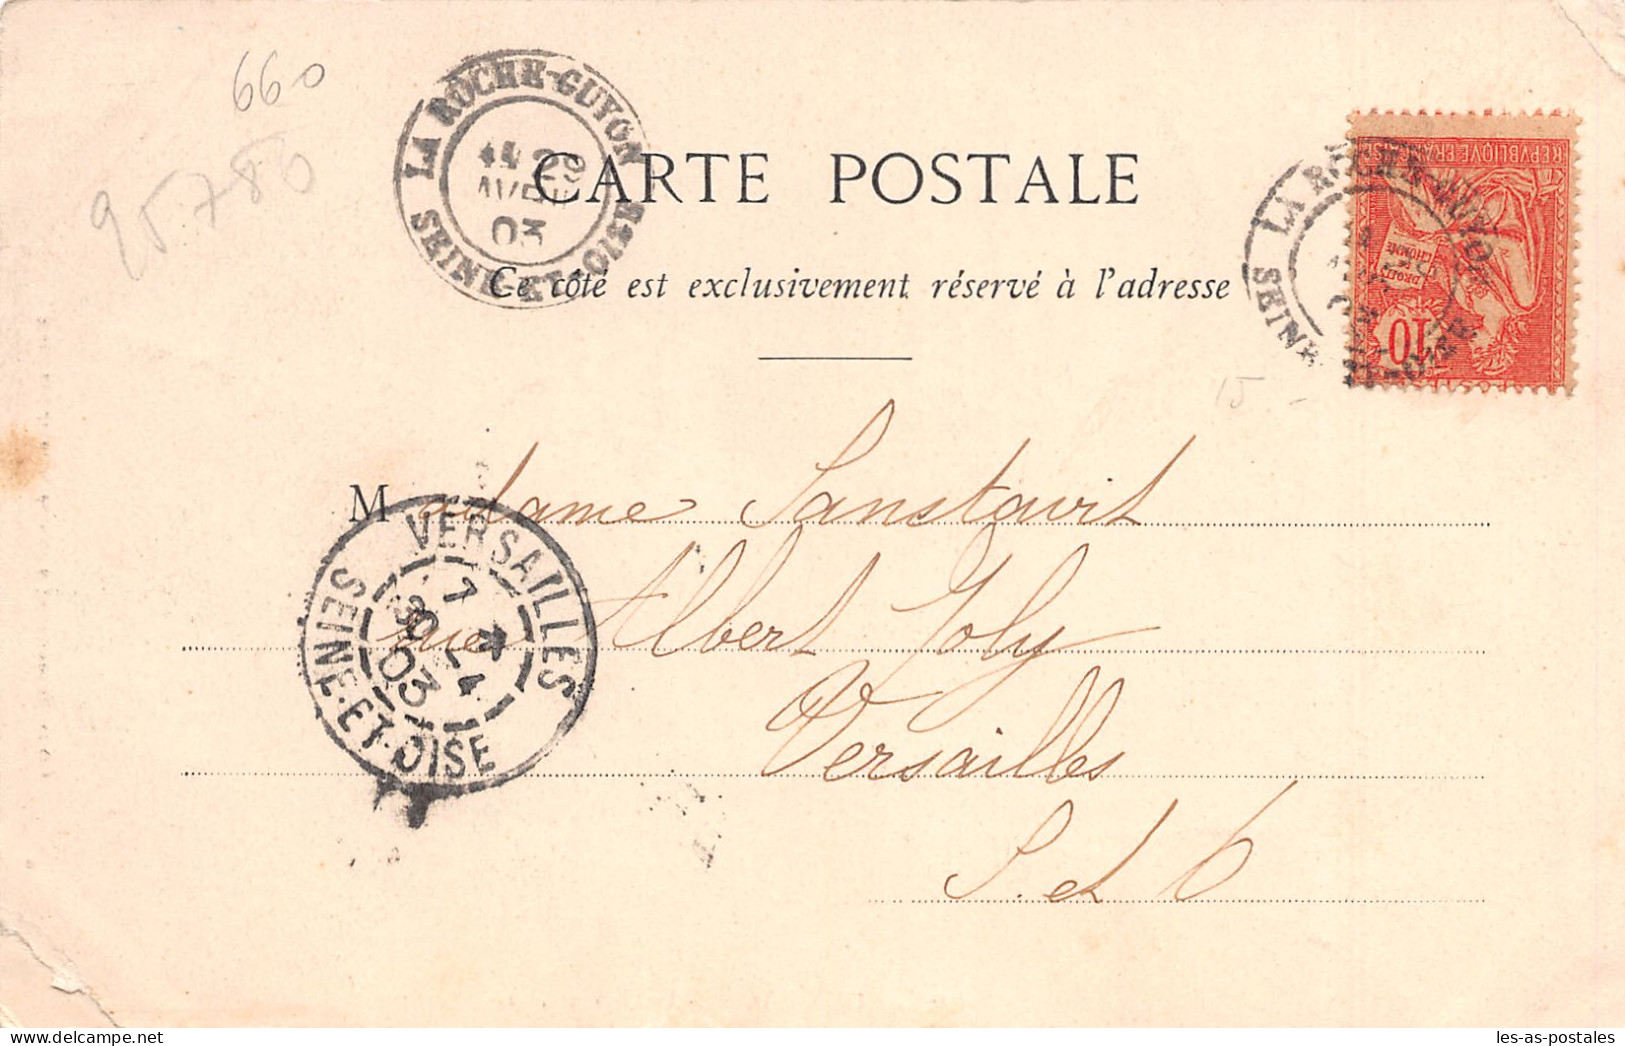 660
95.780
LA ROCHE-GUYON
29
AVRIL
03
SEINE-ET-OISE
CARTE POSTALE
Ce côté est exclusivement réservé à l'adresse
REPVBLIQVE FRANÇAISE
DROITS DE L'HOMME
10
LA ROCHE-GUYON
SEINE-ET-OISE
15
Madame Sanstavit
rue Albert Joly
Versailles
S. et O
VERSAILLES
7
30
4
03
SEINE-ET-OISE
les-as-postales